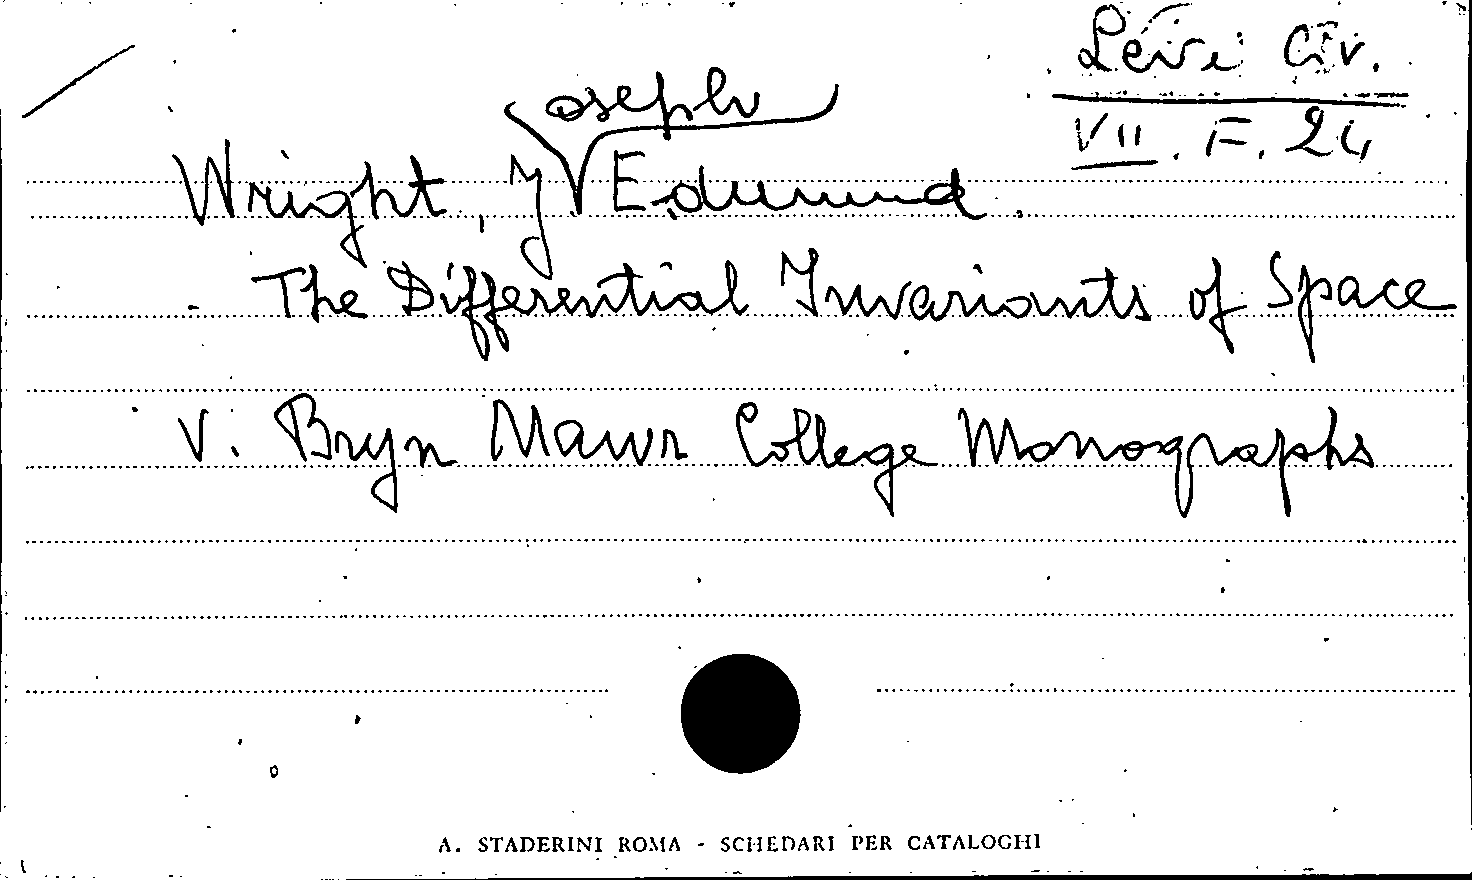 Levi Civ.
VII. F. 24
Wright, Joseph Edmund.
- The Differential Invariants of Space
V. Bryn Mawr College Monographs
A. STADERINI ROMA - SCHEDARI PER CATALOGHI